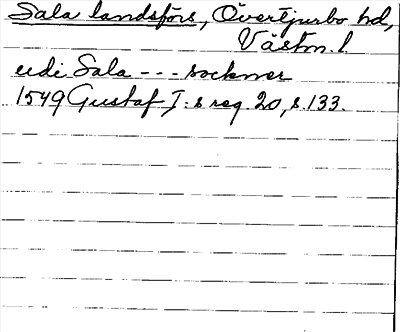 Sala landsförs, Övertjurbo hd,
Västm. l
udi Sala --- socknar
1549 Gustaf I:s reg. 20, s. 133.